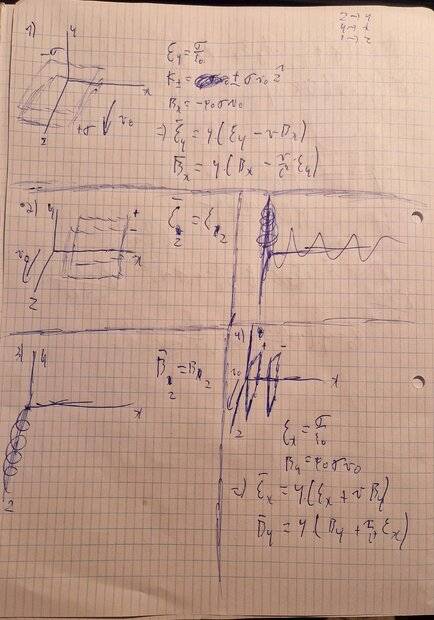 2 → y
y → x
1 → z
1)
y
-σ
x
z
+σ
v₀
ε_y = σ/ε₀
K± = ± σ v₀ ẑ
B_x = -μ₀ σ v₀
=) ε̄_y = γ(ε_y - v B_x)
B̄_x = γ(B_x - v/c² ε_y)
2)
y
+
-
x
v₀
z
ε̄_z = ε_z
3)
y
x
z
B̄_z = B_z
4)
y
+
-
v₀
x
z
ε_x = σ/ε₀
B_y = μ₀ σ v₀
=) ε̄_x = γ(ε_x + v B_y)
B̄_y = γ(B_y + v/c² ε_x)